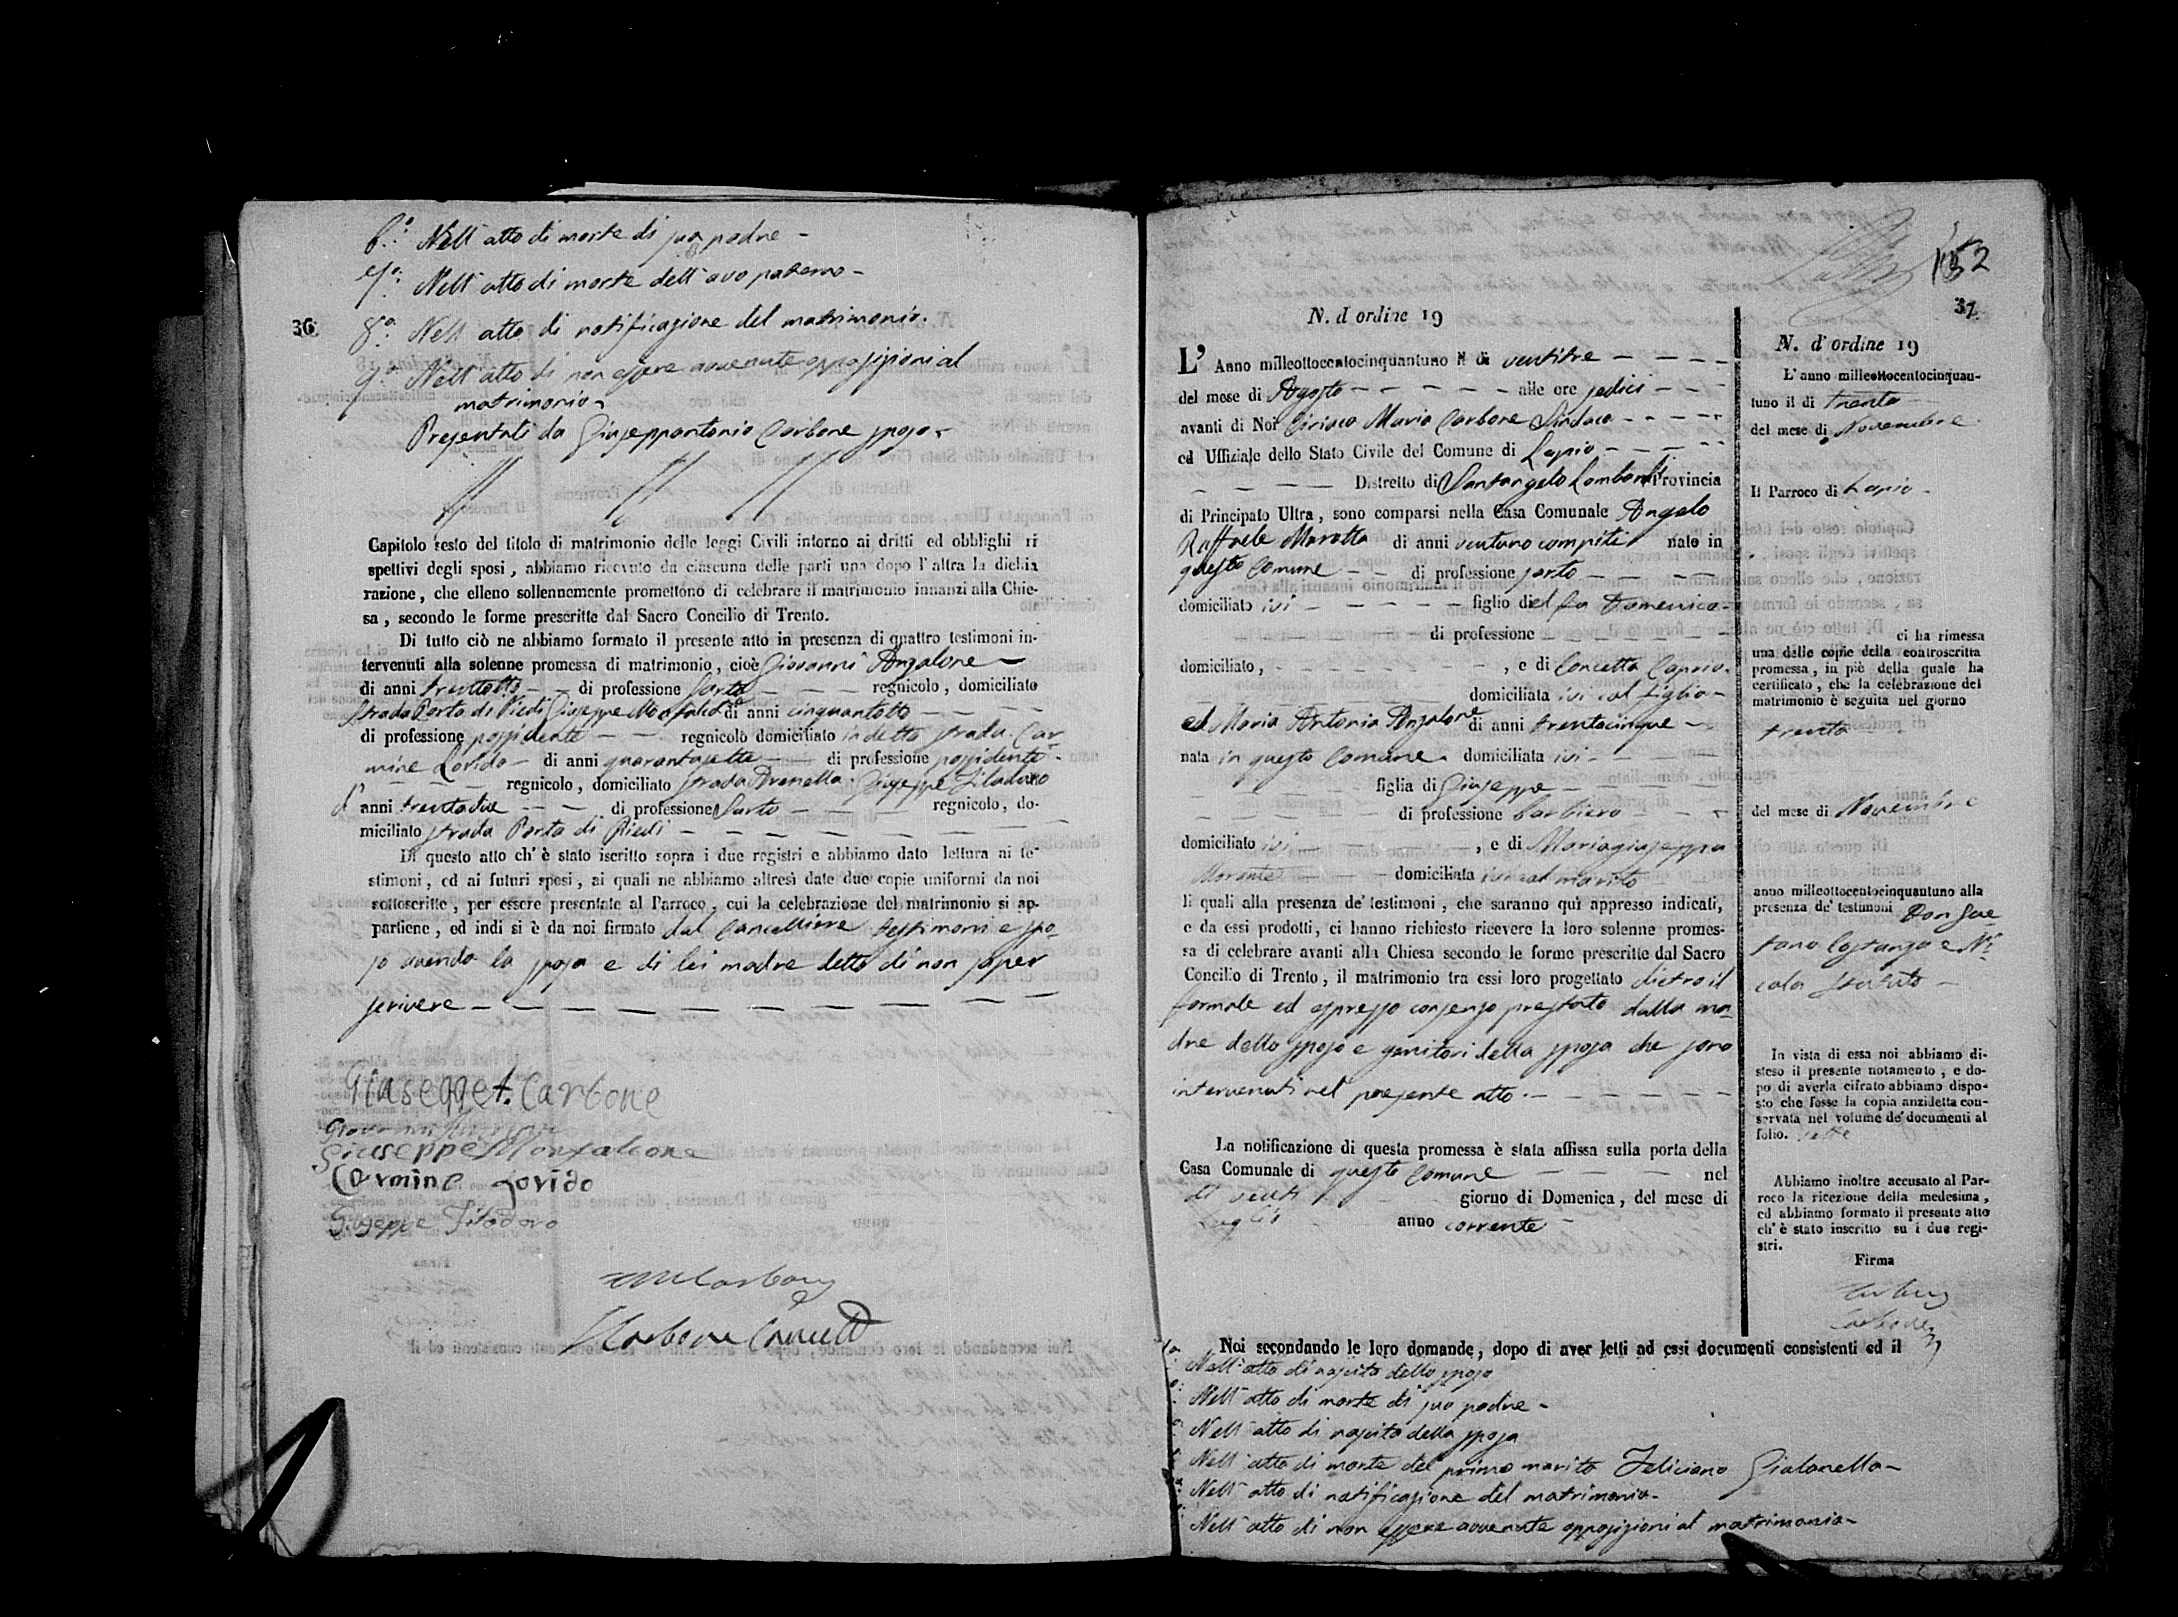 6.° Nell' atto di morte di suo padre -
7.° Nell' atto di morte dell' avo paterno -
36
8.° Nell' atto di notificazione del matrimonio.
9.° Nell' atto di non essere avvenute opposizioni al
matrimonio -
Presentati da Giuseppantonio Carbone sposo.
Capitolo sesto del titolo di matrimonio delle leggi Civili intorno ai dritti ed obblighi ri
spettivi degli sposi, abbiamo ricevuto da ciascuna delle parti una dopo l'altra la dichia
razione, che elleno sollennemente promettono di celebrare il matrimonio innanzi alla Chie-
sa, secondo le forme prescritte dal Sacro Concilio di Trento.
Di tutto ciò ne abbiamo formato il presente atto in presenza di quattro testimoni in-
tervenuti alla solenne promessa di matrimonio, cioè Giovanni Anzalone
di anni trentotto di professione Sarto regnicolo, domiciliato
strada Porta di Piedi Giuseppe Monfalcone di anni cinquantotto
di professione possidente regnicolo domiciliato in detta strada. Car-
mine Lorido di anni quarantasette di professione possidente
regnicolo, domiciliato strada Giuseppe Filadoro
d' anni trentadue di professione Sarto regnicolo, do-
miciliato strada Porta di Piedi
Di questo atto ch' è stato iscritto sopra i due registri e abbiamo dato lettura ai te-
stimoni, ed ai futuri sposi, ai quali ne abbiamo altresì date due copie uniformi da noi
sottoscritte, per essere presentate al Parroco, cui la celebrazione del matrimonio si ap-
partiene, ed indi si è da noi firmato dal Cancelliere testimoni e spo-
so avendo la sposa e di lei madre detto di non saper
scrivere
Giuseppe A. Carbone
Giuseppe Monfalcone
Carmine Lorido
Giuseppe Filadoro
Carbone
Carbone Cancell
152
37.
N. d'ordine 19
L' Anno milleottocentocinquantuno il di ventitre
del mese di Agosto alle ore sedici
avanti di Noi Ciriaco Maria Carbone Sindaco
ed Uffiziale dello Stato Civile del Comune di Lapio
Distretto di Santangelo Lombardi Provincia
di Principato Ultra, sono comparsi nella Casa Comunale Angelo
Raffaele Maratta di anni ventuno compiti nato in
questo Comune di professione sarto
domiciliato ivi figlio del fu Domenico
di professione
domiciliato, , e di Concetta Caprio
domiciliata ivi col figlio
ed Maria Antonia Anzalone di anni trentacinque
nata in questo Comune domiciliata ivi
figlia di Giuseppe
di professione barbiere
domiciliato ivi , e di Mariagiuseppa
Morante domiciliata ivi col marito
li quali alla presenza de' testimoni, che saranno quì appresso indicati,
e da essi prodotti, ci hanno richiesto ricevere la loro solenne promes-
sa di celebrare avanti alla Chiesa secondo le forme prescritte dal Sacro
Concilio di Trento, il matrimonio tra essi loro progettato dietro il
formale ed espresso consenso prestato dalla ma-
dre dello sposo e genitori della sposa che sono
intervenuti nel presente atto.
La notificazione di questa promessa è stata affissa sulla porta della
Casa Comunale di questo Comune nel
dì venti giorno di Domenica, del mese di
Luglio anno corrente
N. d' ordine 19
L' anno milleottocentocinquan-
tuno il di trenta
del mese di Novembre
Il Parroco di Lapio
ci ha rimessa
una delle copie della controscritta
promessa, in piè della quale ha
certificato, che la celebrazione del
matrimonio è seguita nel giorno
trenta
del mese di Novembre
anno milleottocentocinquantuno alla
presenza de' testimoni Don Gae-
tano Costanza e Ni-
cola
In vista di essa noi abbiamo di-
steso il presente notamento, e do-
po di averla cifrato abbiamo dispo-
sto che fosse la copia anzidetta con-
servata nel volume de' documenti al
folio. sette
Abbiamo inoltre accusato al Par-
roco la ricezione della medesima,
ed abbiamo formato il presente atto
ch' è stato inscritto su i due regi-
stri.
Firma
Carbone
Noi secondando le loro domande, dopo di aver letti ad essi documenti consistenti ed il
Nell' atto di nascita dello sposo
Nell' atto di morte di suo padre -
Nell' atto di nascita della sposa
Nell' atto di morte del primo marito Feliciano Gialanella -
Nell' atto di notificazione del matrimonio -
Nell' atto di non essere avvenute opposizioni al matrimonio -